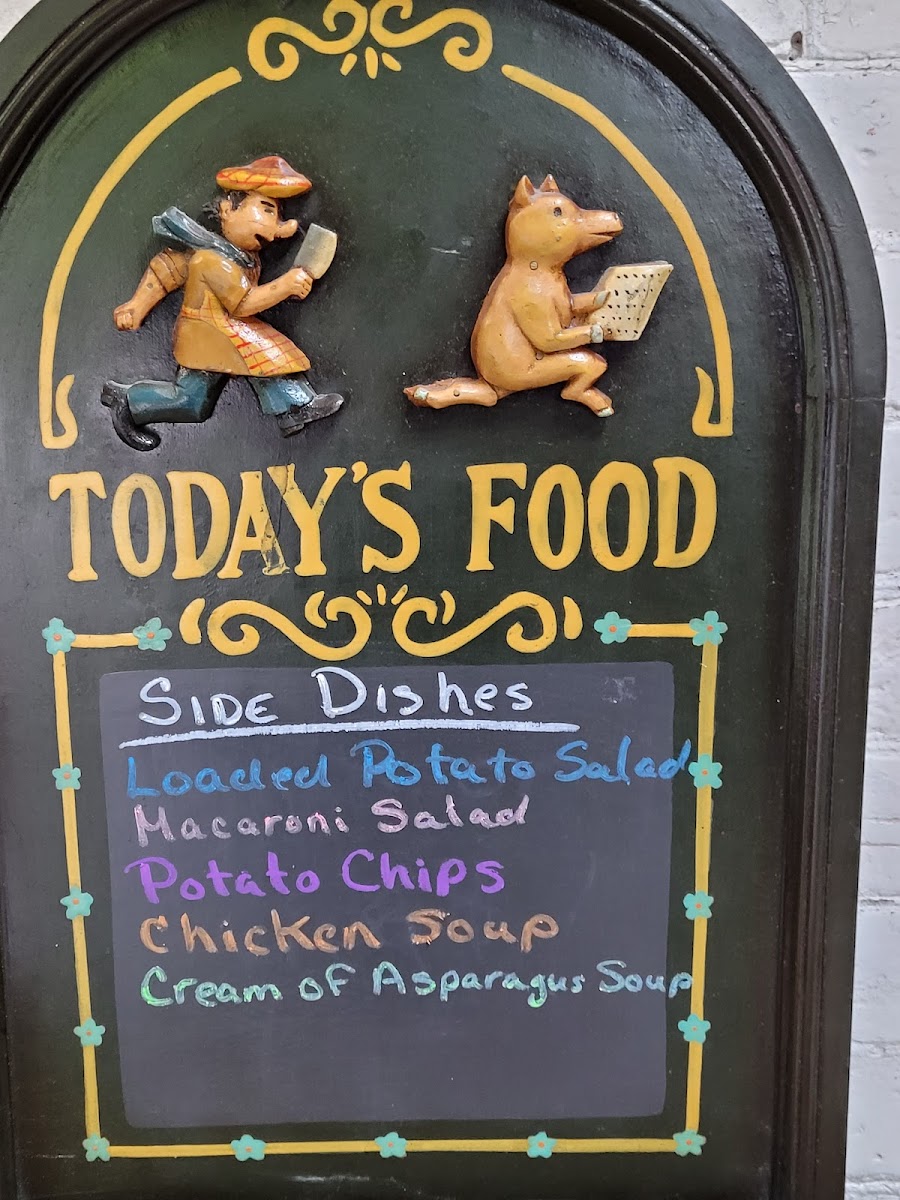 TODAY'S FOOD
SIDE Dishes
Loaded Potato Salad
Macaroni Salad
Potato Chips
Chicken Soup
Cream of Asparagus Soup